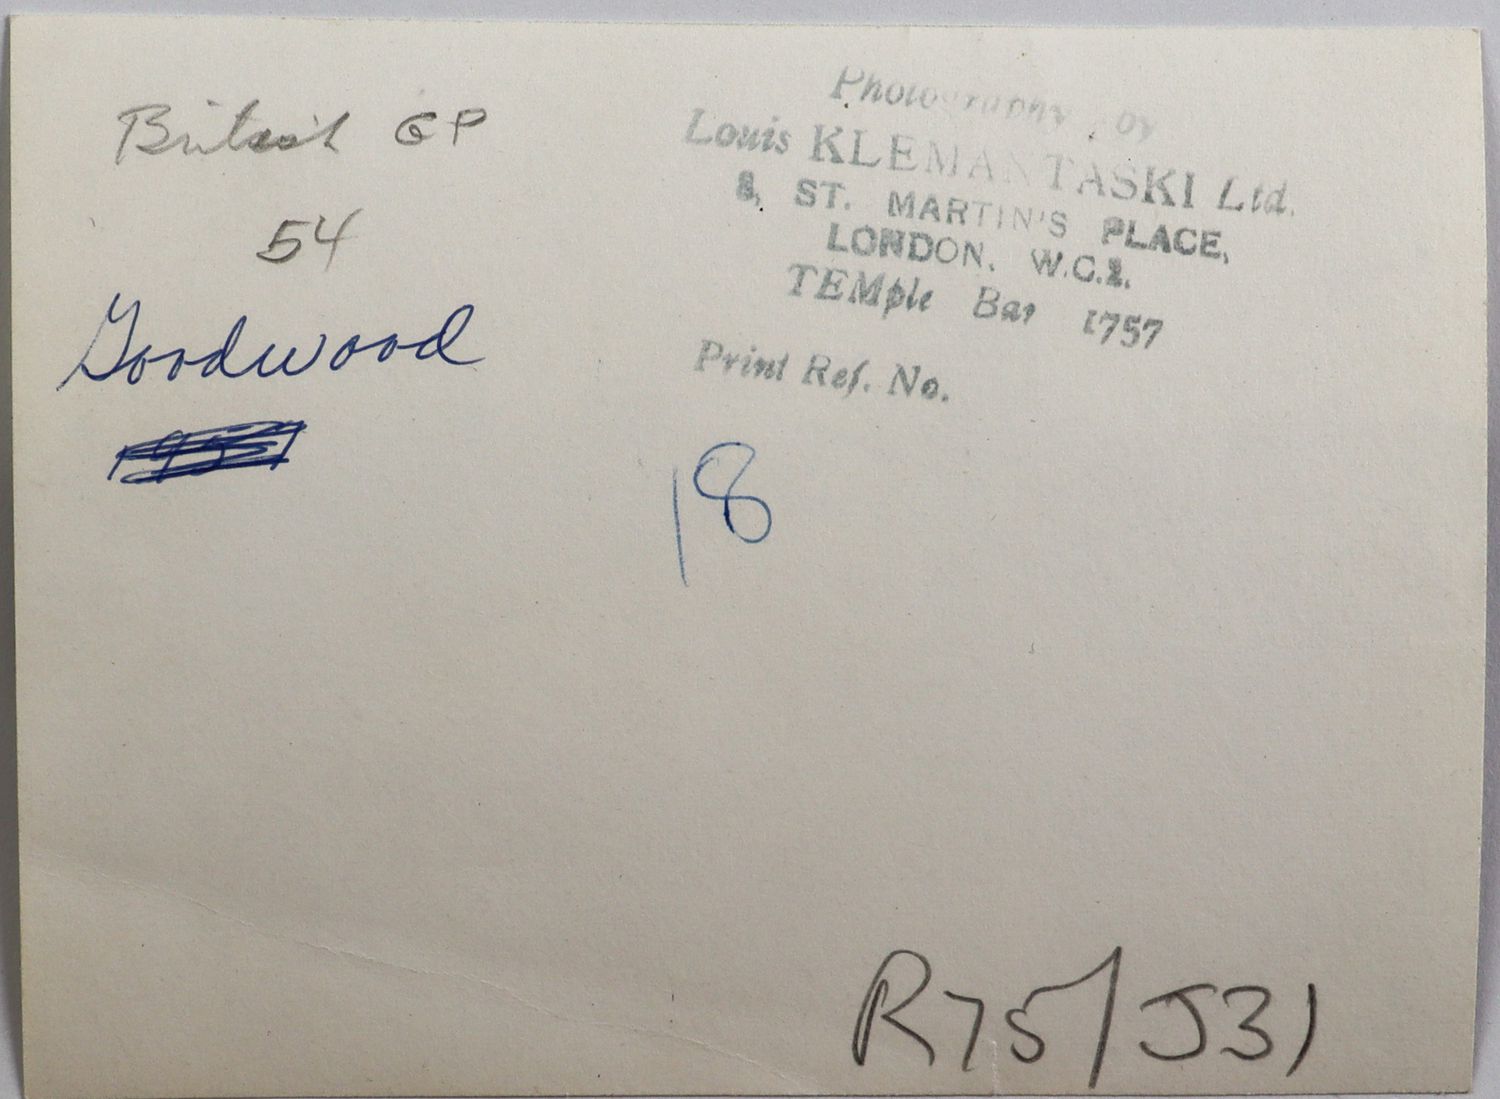 British GP
54
Goodwood
Photography by
Louis KLEMANTASKI Ltd.
8, ST. MARTIN'S PLACE,
LONDON. W.C.2.
TEMple Bar 1757
Print Ref. No.
18
R75/J31